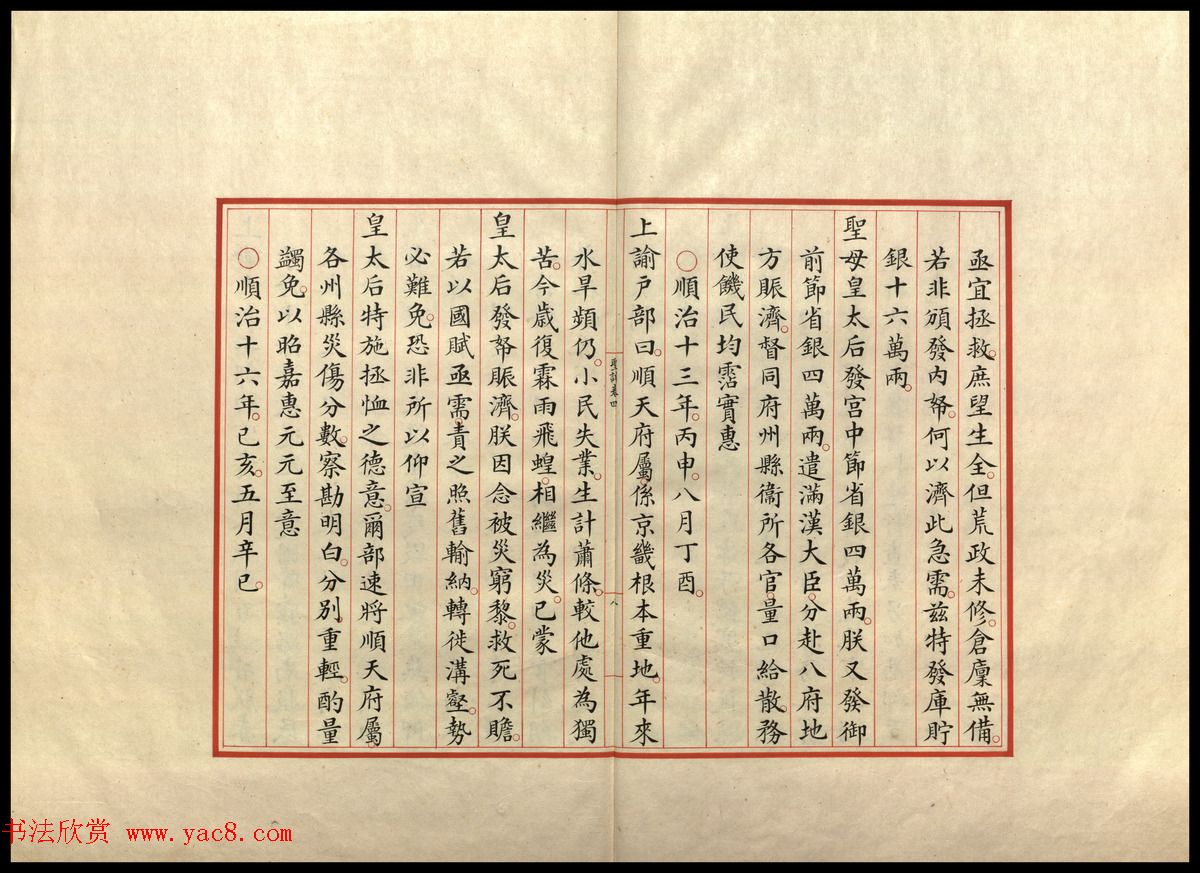 亟宜拯救。庶望生全。但荒政未修。倉廩無備。
若非頒發內帑。何以濟此急需。兹特發庫貯
銀十六萬兩。
聖母皇太后發宮中節省銀四萬兩。朕又發御
前節省銀四萬兩。遣滿漢大臣。分赴八府地
方賑濟。督同府州縣衞所各官。量口給散。務
使饑民均霑實惠
○順治十三年。丙申。八月丁酉。
上諭戶部曰。順天府屬。係京畿根本重地。年來
聖訓卷四
八
水旱頻仍。小民失業。生計蕭條。較他處為獨
苦。今歲復霖雨飛蝗。相繼為災。已蒙
皇太后發帑賑濟。朕因念被災窮黎。救死不贍。
若以國賦亟需。責之照舊輸納。轉徙溝壑。勢
必難免。恐非所以仰宣
皇太后特施拯恤之德意。爾部速將順天府屬。
各州縣災傷分數。察勘明白。分別重輕。酌量
蠲免。以昭嘉惠元元至意
○順治十六年。己亥。五月辛巳。
书法欣赏 www.yac8.com